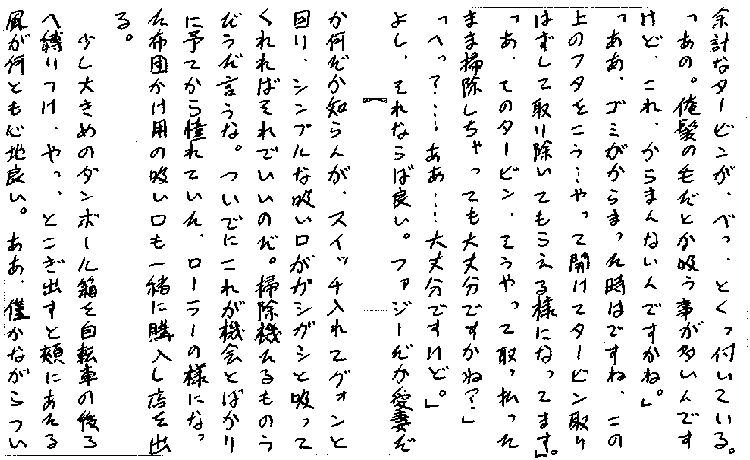 余計なタービンが、ぺっ、とくっ付いている。
「あの。俺髪の毛だとか吸う事が多いんです
けど、これ、からまんないんですかね。」
「ああ、ゴミがからまった時はですね、この
上のフタをこう…やって開けてタービン取り
はずして取り除いてもらえる様になってます。」
「あ、そのタービン、そうやって取っ払った
まま掃除しちゃっても大丈夫ですかね?」
「へっ?…。ああ…大丈夫ですけど。」
よし、それならば良い。ファジーだか愛妻だ
か何だか知らんが、スイッチ入れてヴォンと
回り、シンプルな吸い口がガシガシと吸って
くれればそれでいいのだ。掃除機たるものう
だうだ言うな。ついでにこれが機会とばかり
に予てから憧れていた、ローラーの様になっ
た布団かけ用の吸い口も一緒に購入し店を出
る。
少し大きめのダンボール箱を自転車の後ろ
へ縛りつけ、やっ、とこぎ出すと頬にあたる
風が何とも心地良い。ああ、僅かながらつい